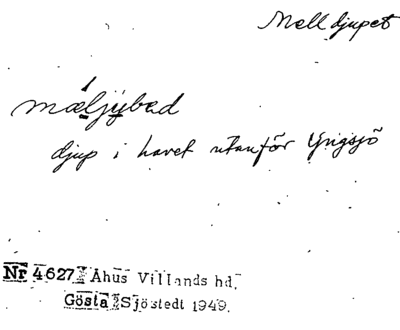 Mælldjupet
mæljübed
djup i havet utanför Yngsjö
Nr 4627 Åhus Villands hd.
Gösta Sjöstedt 1949.